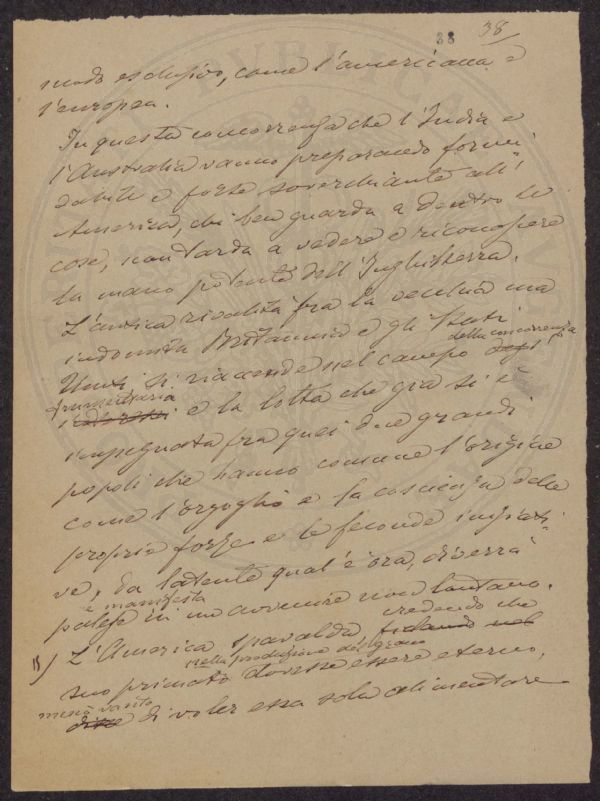 38 38
modo esclusivo, come l'americana e
l'europea.
In questa concorrenza che l'India e
l'Australia vanno preparando formi-
dabile e forse soverchiante all'
America, chi ben guarda a dentro le
cose, non tarda a vedere e riconoscere
la mano potente dell'Inghilterra.
L'antica rivalità fra la vecchia ma
indomita Britannia e gli Stati
della concorrenza
Uniti si riaccende nel campo degl'
frumentaria
interessi e la lotta che già si è
impegnata fra quei due grandi
popoli che hanno comune l'origine
come l'orgoglio e la coscienza delle
proprie forze e le feconde iniziati-
ve, da latente qual'è ora, diverrà
e manifesta
palese in un avvenire non lontano.
credendo che
L'America spavalda, fidando nel
nella produzione del grano
suo primato dovesse essere eterno,
menò vanto
disse di voler essa sola alimentare